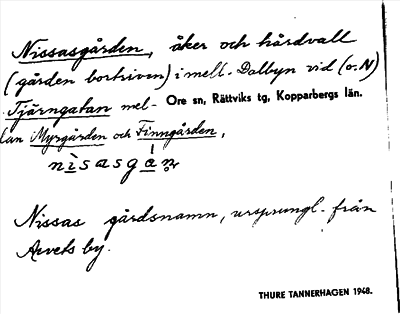 Nissasgården, åker och hårdvall
(gården bortriven) i mell. Dalbyn vid (o. N)
Tjärngatan mel- Ore sn, Rättviks tg, Kopparbergs län.
lan Myrgården och Finngården,
nisasgan
Nissas gårdsnamn, ursprungl. från
Arvets by.
THURE TANNERHAGEN 1948.